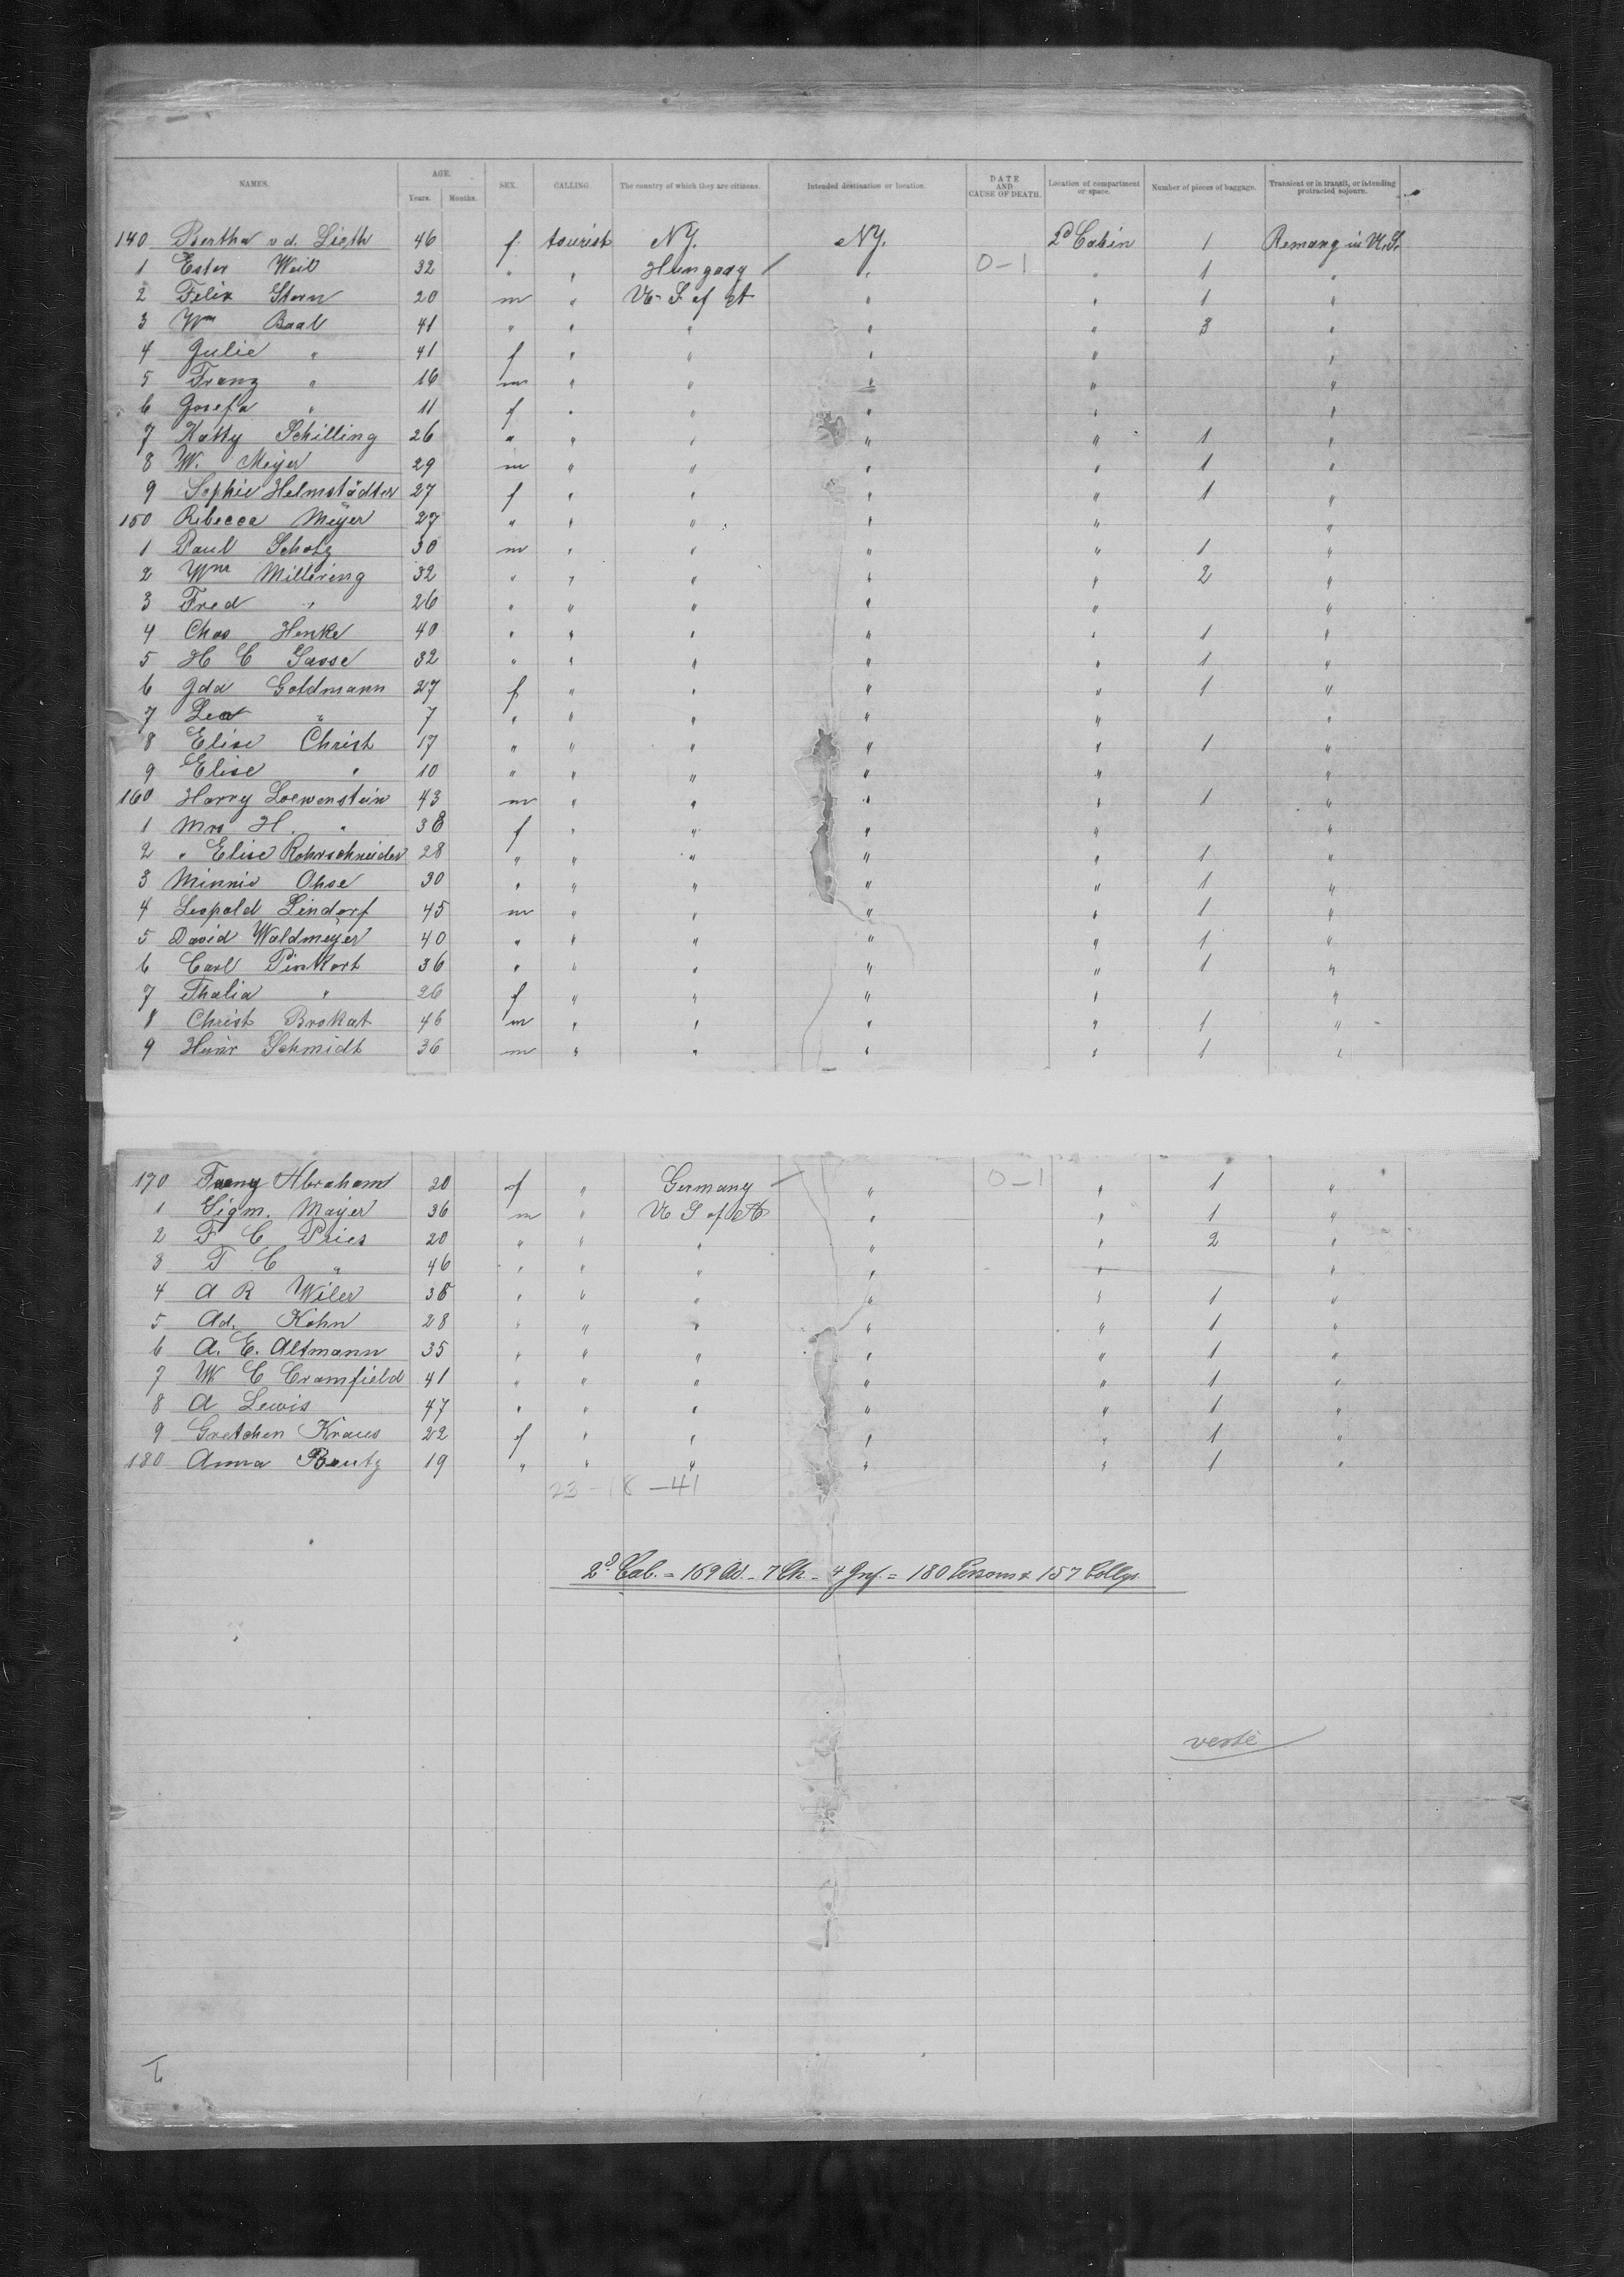 NAMES. AGE. Years. Months. SEX. CALLING. The country of which they are citizens. Intended destination or location. DATE AND CAUSE OF DEATH. Location of compartment or space. Number of pieces of baggage. Transient or in transit, or intending protracted sojourn.
140 Bertha v d. Lieth 46 f. tourist NY. NY. 2d Cabin 1 Remang in U.St.
1 Ester Weil 32 " " Hungary / " 0-1 " 1 "
2 Felix Stern 20 m " U. S of A " " 1 "
3 Wm Baal 41 " " " " " 3 "
4 Julie " 41 f " " " " "
5 Franz " 16 m " " " " "
6 Josefa " 11 f " " " " "
7 Katty Schilling 26 " " " " " 1 "
8 W. Meyer 29 m " " " " 1 "
9 Sophie Helmstädter 27 f " " " " 1 "
150 Rebecca Meyer 27 " " " " " "
1 Paul Scholz 30 m " " " " 1 "
2 Wm Millering 32 " " " " " 2 "
3 Fred " 26 " " " " " "
4 Chas Henke 40 " " " " " 1 "
5 H C Sasse 32 " " " " " 1 "
6 Ida Goldmann 27 f " " " " 1 "
7 Lea " 7 " " " " " "
8 Elise Christ 17 " " " " " 1 "
9 Elise " 10 " " " " " "
160 Harry Loewenstein 43 m " " " " 1 "
1 Mrs H. " 38 f " " " " "
2 " Elise Rohrschneider 28 " " " " " 1 "
3 Minnie Ohse 30 " " " " " 1 "
4 Leopold Lindorf 45 m " " " " 1 "
5 David Waldmeyer 40 " " " " " 1 "
6 Carl Pinkort 36 " " " " " 1 "
7 Thalia " 26 f " " " " "
8 Christ Brokat 46 m " " " " 1 "
9 Heinr Schmidt 36 m " " " " 1 "
170 Fanny Abraham 20 f " Germany / " 0-1 " 1 "
1 Sigm. Mayer 36 m " U S of A " " 1 "
2 F C Pries 20 " " " " " 2 "
3 T C " 46 " " " " " "
4 A R Wiler 36 " " " " " 1 "
5 Ad. Kohn 28 " " " " " 1 "
6 A. E. Altmann 35 " " " " " 1 "
7 W C Cramfield 41 " " " " " 1 "
8 A Lewis 47 " " " " " 1 "
9 Gretchen Kraus 22 f " " " " 1 "
180 Anna Bentz 19 " " " " " 1 "
23-18-41
2d Cab. = 169 Ad. - 7 Ch. - 4 Inf. = 180 Persons & 157 Collys